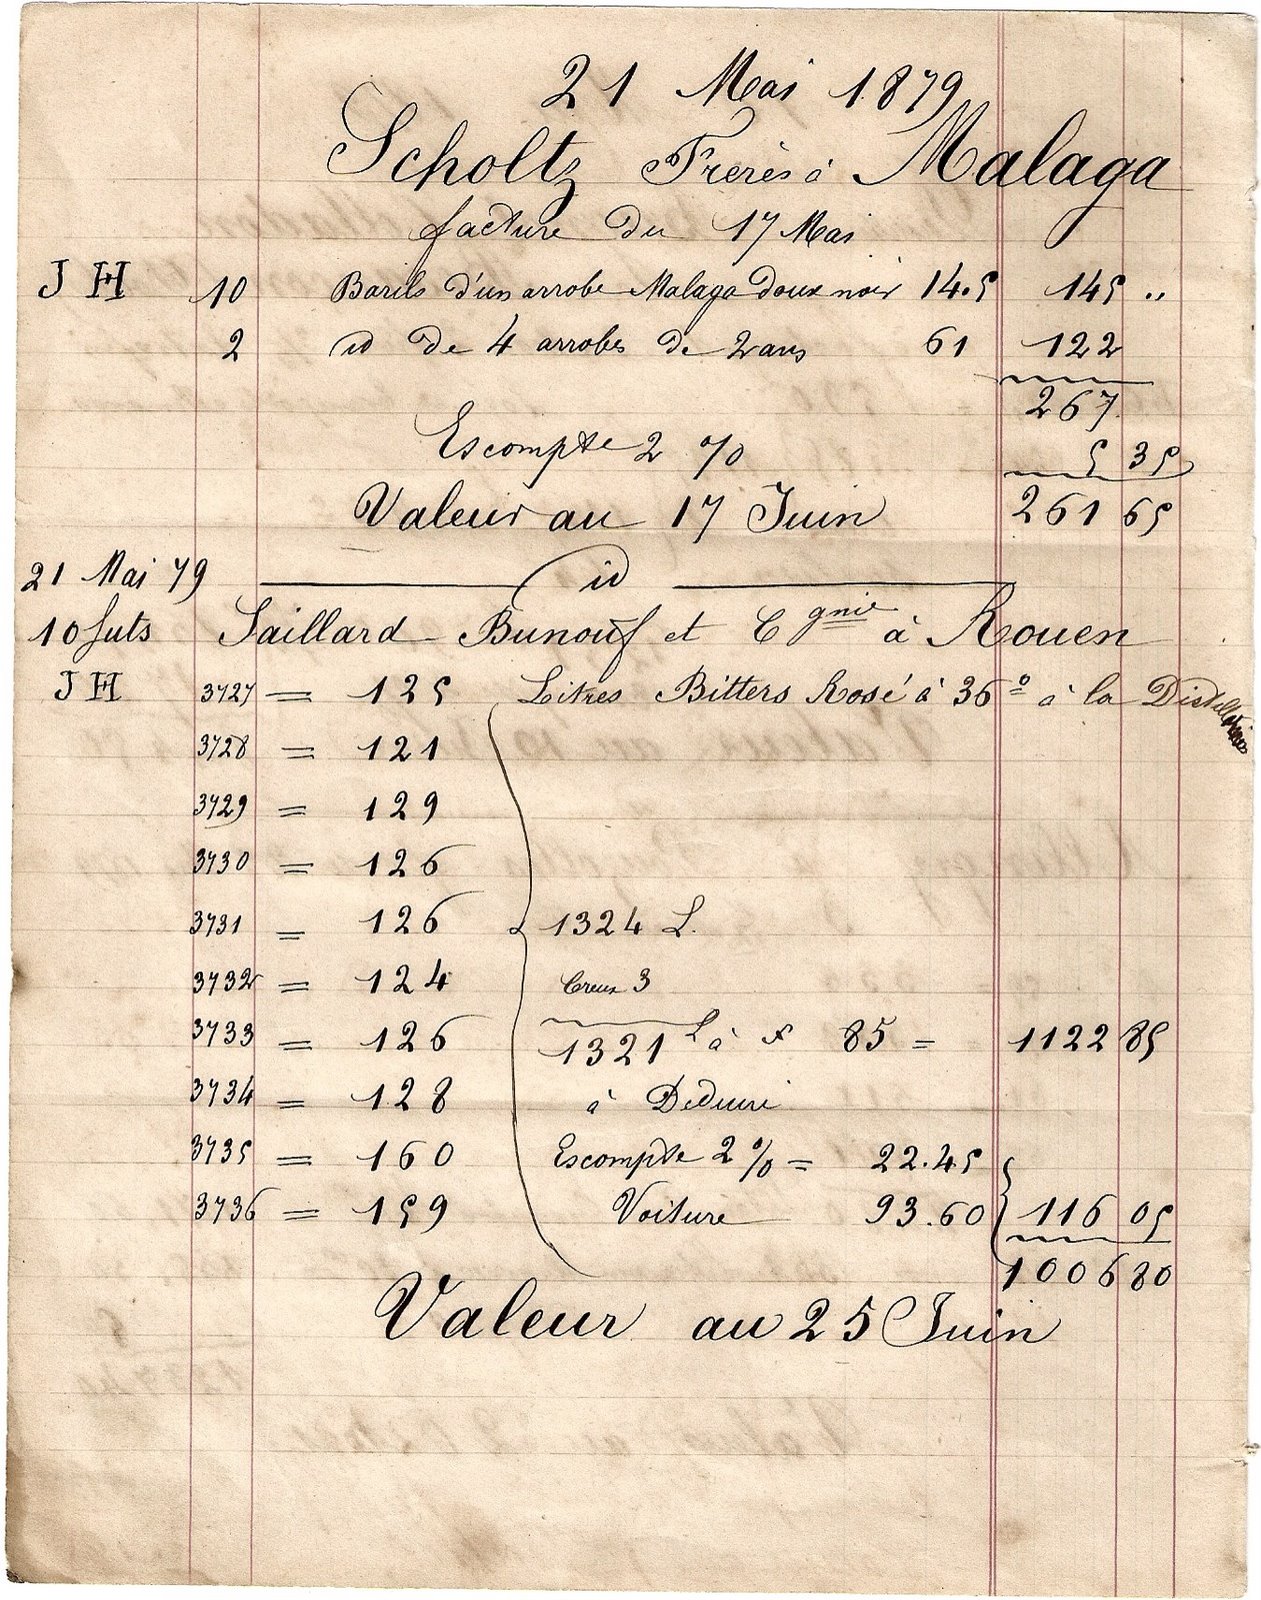 21 Mai 1879
Scholtz Frères à Malaga
facture du 17 Mai
J H 10 Barils d'un arrobe Malaga doux noir 14.5 145 "
2 id de 4 arrobes de 2 ans 61 122
267
Escompte 2 % 5 35
Valeur au 17 Juin 261 65
21 Mai 79 id
10 futs Saillard - Bunouf et Cgnie à Rouen
J H 3727 = 125 Litres Bitters Rosé à 36º à la Distillerie
3728 = 121
3729 = 129
3730 = 126
3731 = 126 1324 L.
3732 = 124 Creux 3
3733 = 126 1321 L à f 85 = 1122 85
3734 = 128 à Deduire
3735 = 160 Escompte 2 % = 22.45
3736 = 159 Voiture 93.60 116 05
1006 80
Valeur au 25 Juin